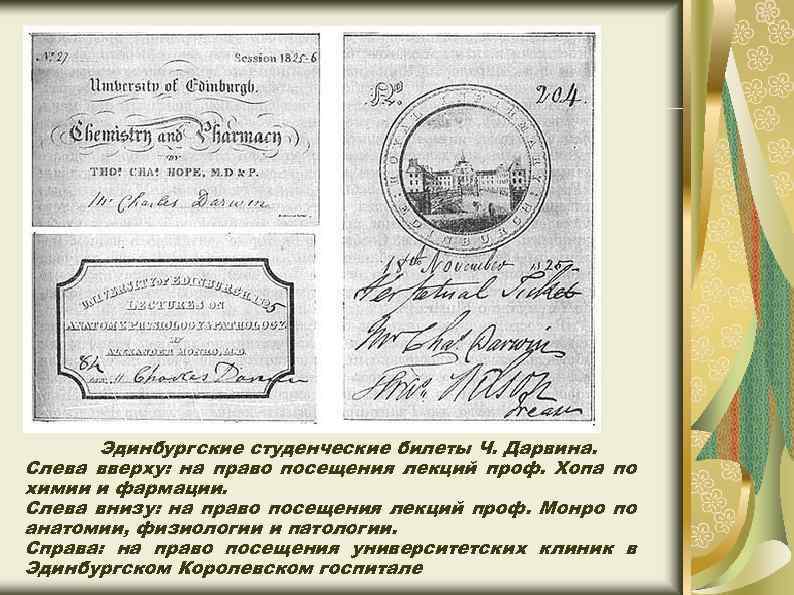 No 27 Session 1825-6
University of Edinburgh.
Chemistry and Pharmacy
BY
THOS. CHAS. HOPE, M.D & P.
Mr Charles Darwin
UNIVERSITY OF EDINBURGH 1825
LECTURES ON
ANATOMY, PHYSIOLOGY & PATHOLOGY
BY
ALEXANDER MONRO, M.D.
84
Charles Darwin
No. 204.
ROYAL INFIRMARY
EDINBURGH
18th November 1825
Perpetual Ticket
Mr Chas. Darwin
Эдинбургские студенческие билеты Ч. Дарвина.
Слева вверху: на право посещения лекций проф. Хопа по
химии и фармации.
Слева внизу: на право посещения лекций проф. Монро по
анатомии, физиологии и патологии.
Справа: на право посещения университетских клиник в
Эдинбургском Королевском госпитале